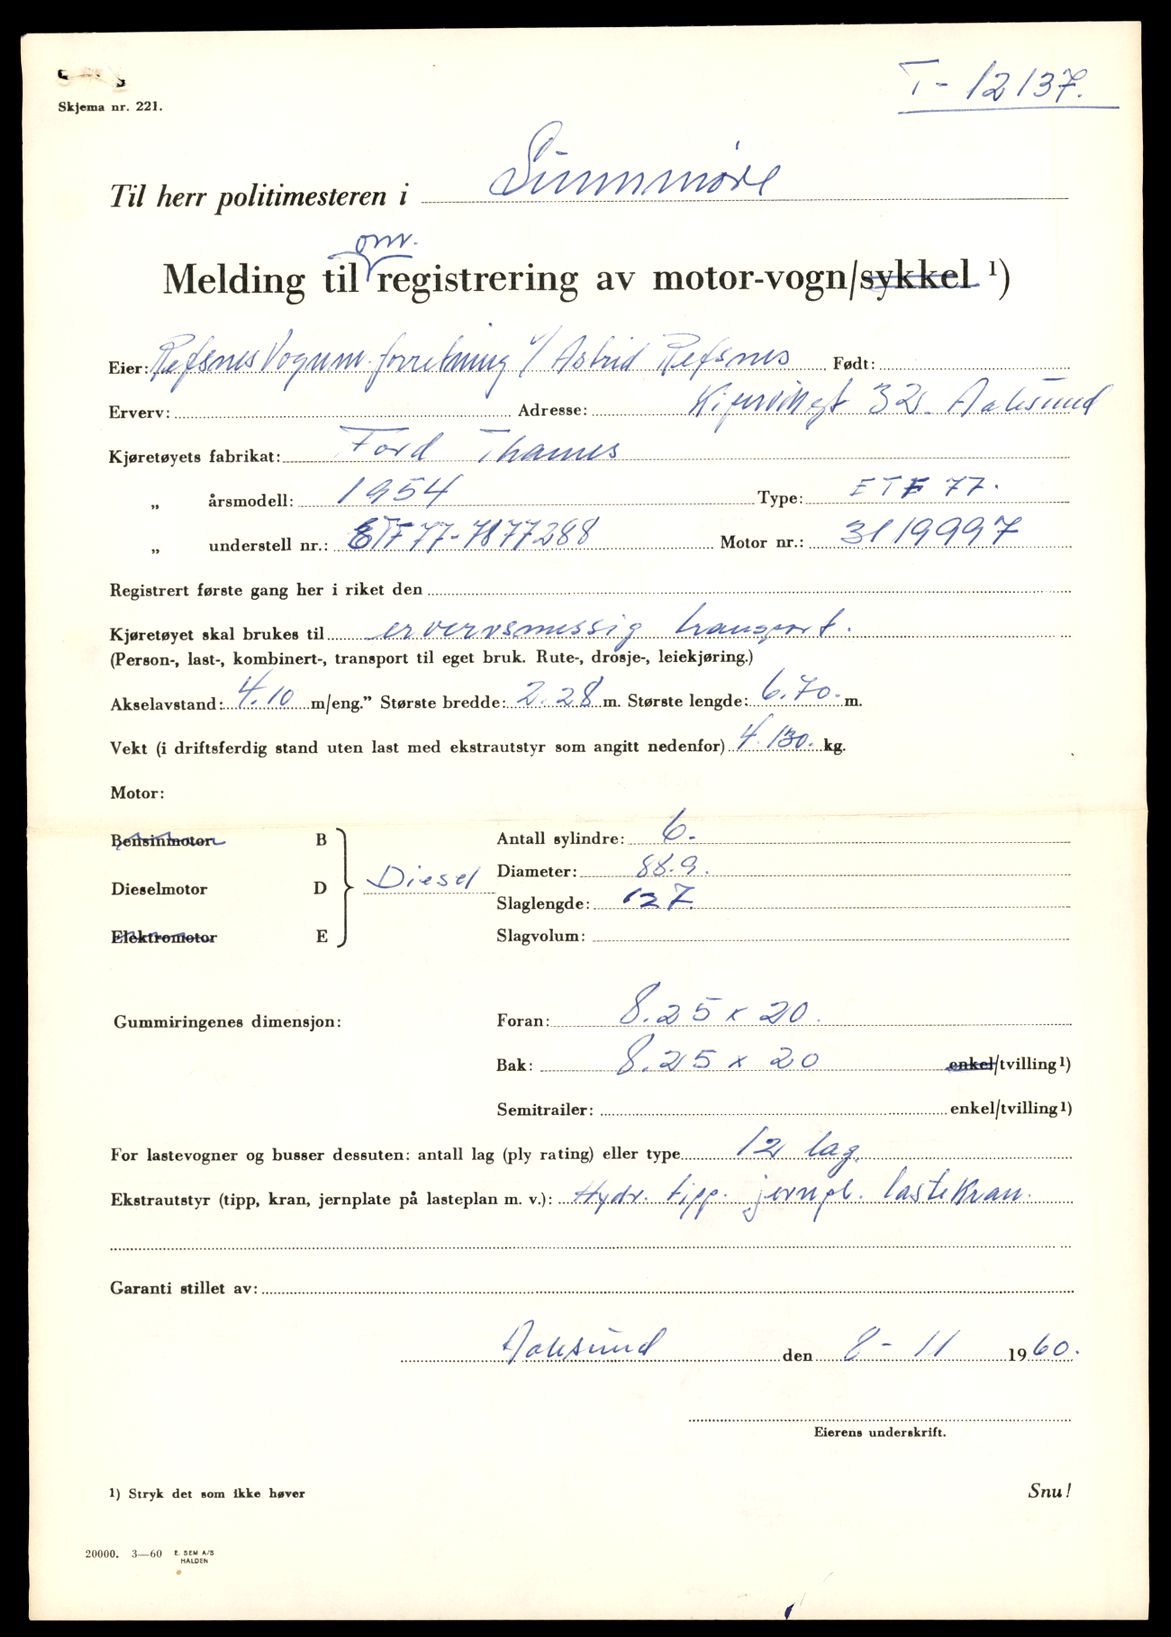 T-12137.
Skjema nr. 221.
Til herr politimesteren i Sunnmøre
om.
Melding til registrering av motor-vogn/sykkel ¹)
Eier: Refsnes Vognm. forretning v/ Astrid Refsnes Født:
Erverv: Adresse: 32. Aalesund
Kjøretøyets fabrikat: Ford Thames
„ årsmodell: 1954 Type: ETF 77.
„ understell nr.: ETF77-7877288 Motor nr.: 3119997
Registrert første gang her i riket den
Kjøretøyet skal brukes til ervervsmessig transport.
(Person-, last-, kombinert-, transport til eget bruk. Rute-, drosje-, leiekjøring.)
Akselavstand: 4.10 m/eng.” Største bredde: 2.28 m. Største lengde: 6.70. m.
Vekt (i driftsferdig stand uten last med ekstrautstyr som angitt nedenfor) 4.130. kg.
Motor:
Bensinmotor B Antall sylindre: 6.
Dieselmotor D Diesel Diameter: 88.9.
Slaglengde: 127.
Elektromotor E Slagvolum:
Gummiringenes dimensjon: Foran: 8.25 x 20.
Bak: 8.25 x 20 enkel/tvilling ¹)
Semitrailer: enkel/tvilling ¹)
For lastevogner og busser dessuten: antall lag (ply rating) eller type 12 lag.
Ekstrautstyr (tipp, kran, jernplate på lasteplan m. v.): Hydr. tipp. jernpl. lastekran.
Garanti stillet av:
Aalesund den 8-11 1960.
Eierens underskrift.
¹) Stryk det som ikke høver Snu!
20000. 3—60 E. SEM A/S
HALDEN